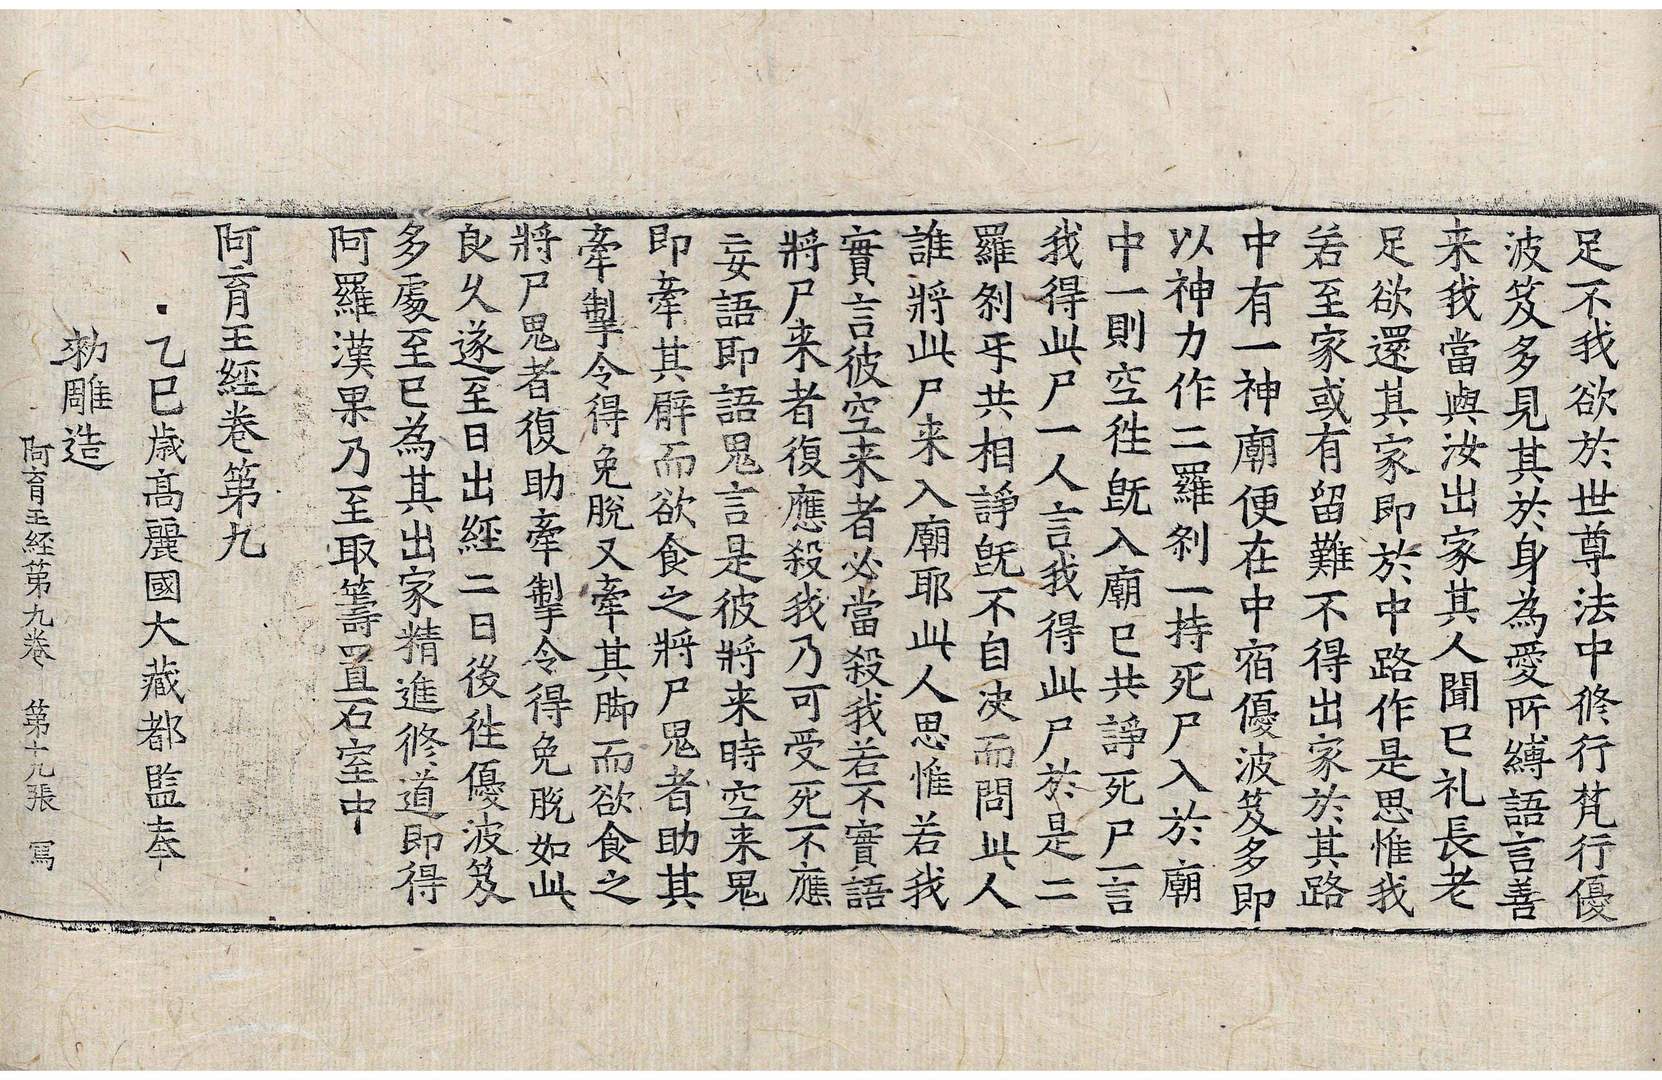 足不我欲於世尊法中修行梵行優
波笈多見其於身為愛所縛語言善
来我當與汝出家其人聞已礼長老
足欲還其家即於中路作是思惟我
若至家或有留難不得出家於其路
中有一神廟便在中宿優波笈多即
以神力作二羅刹一持死尸入於廟
中一則空徃旣入廟已共諍死尸一言
我得此尸一人言我得此尸於是二
羅刹乎共相諍旣不自决而問此人
誰將此尸来入廟耶此人思惟若我
實言彼空来者必當殺我若不實語
將尸来者復應殺我乃可受死不應
妄語即語鬼言是彼將来時空来鬼
即牽其臂而欲食之將尸鬼者助其
牽掣令得免脫又牽其脚而欲食之
將尸鬼者復助牽掣令得免脫如此
良久遂至日出經二日後徃優波笈
多處至已為其出家精進修道即得
阿羅漢果乃至取籌置石室中
阿育王經卷第九
乙巳歳高麗國大藏都監奉
勑雕造
阿育王経第九卷 第十九張 寫